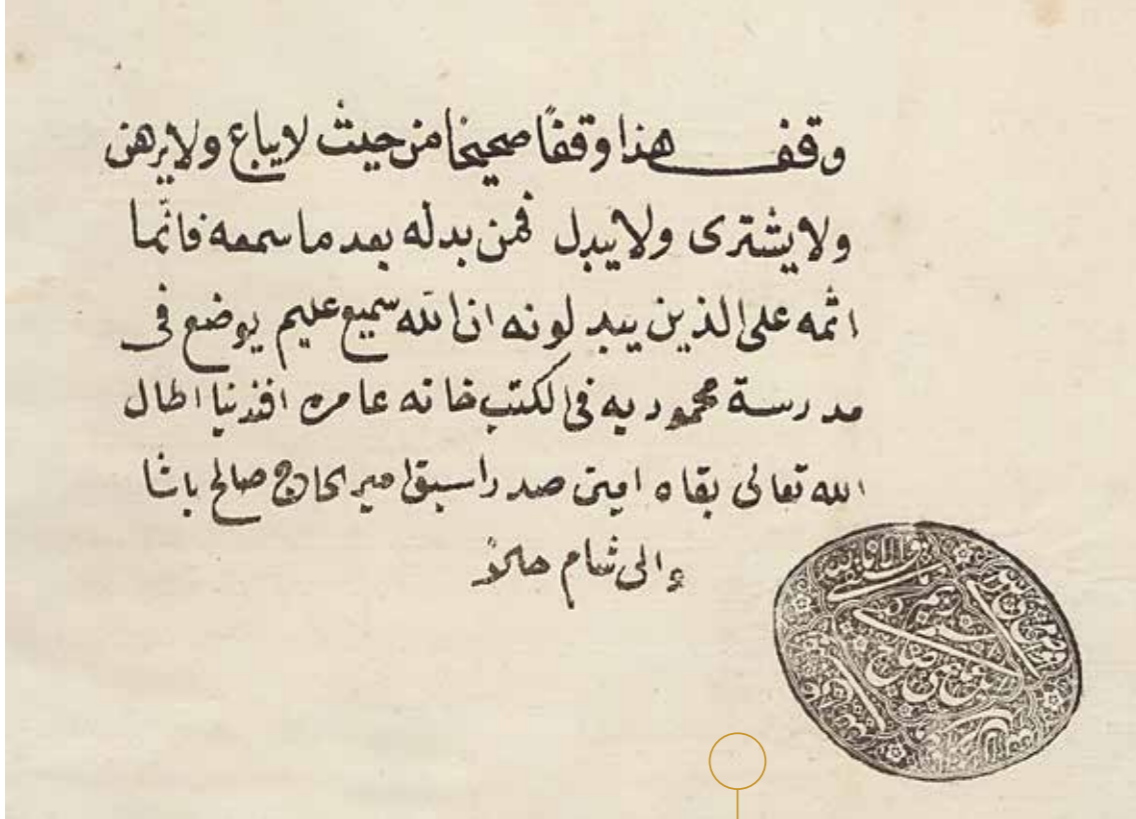 وقف هذا وقفًا صحيحًا من حيث لا يباع ولا يرهن
ولا يشترى ولا يبدل فمن بدله بعد ما سمعه فانّما
اثمه على الذين يبدلونه ان الله سميع عليم يوضع فى
مدرسة محموديه فى الكتبخانه عامره افندنيا اطال
الله تعالى بقاه امين صدر اسبق امير الحاج صالح باشا
والى شام حالاً